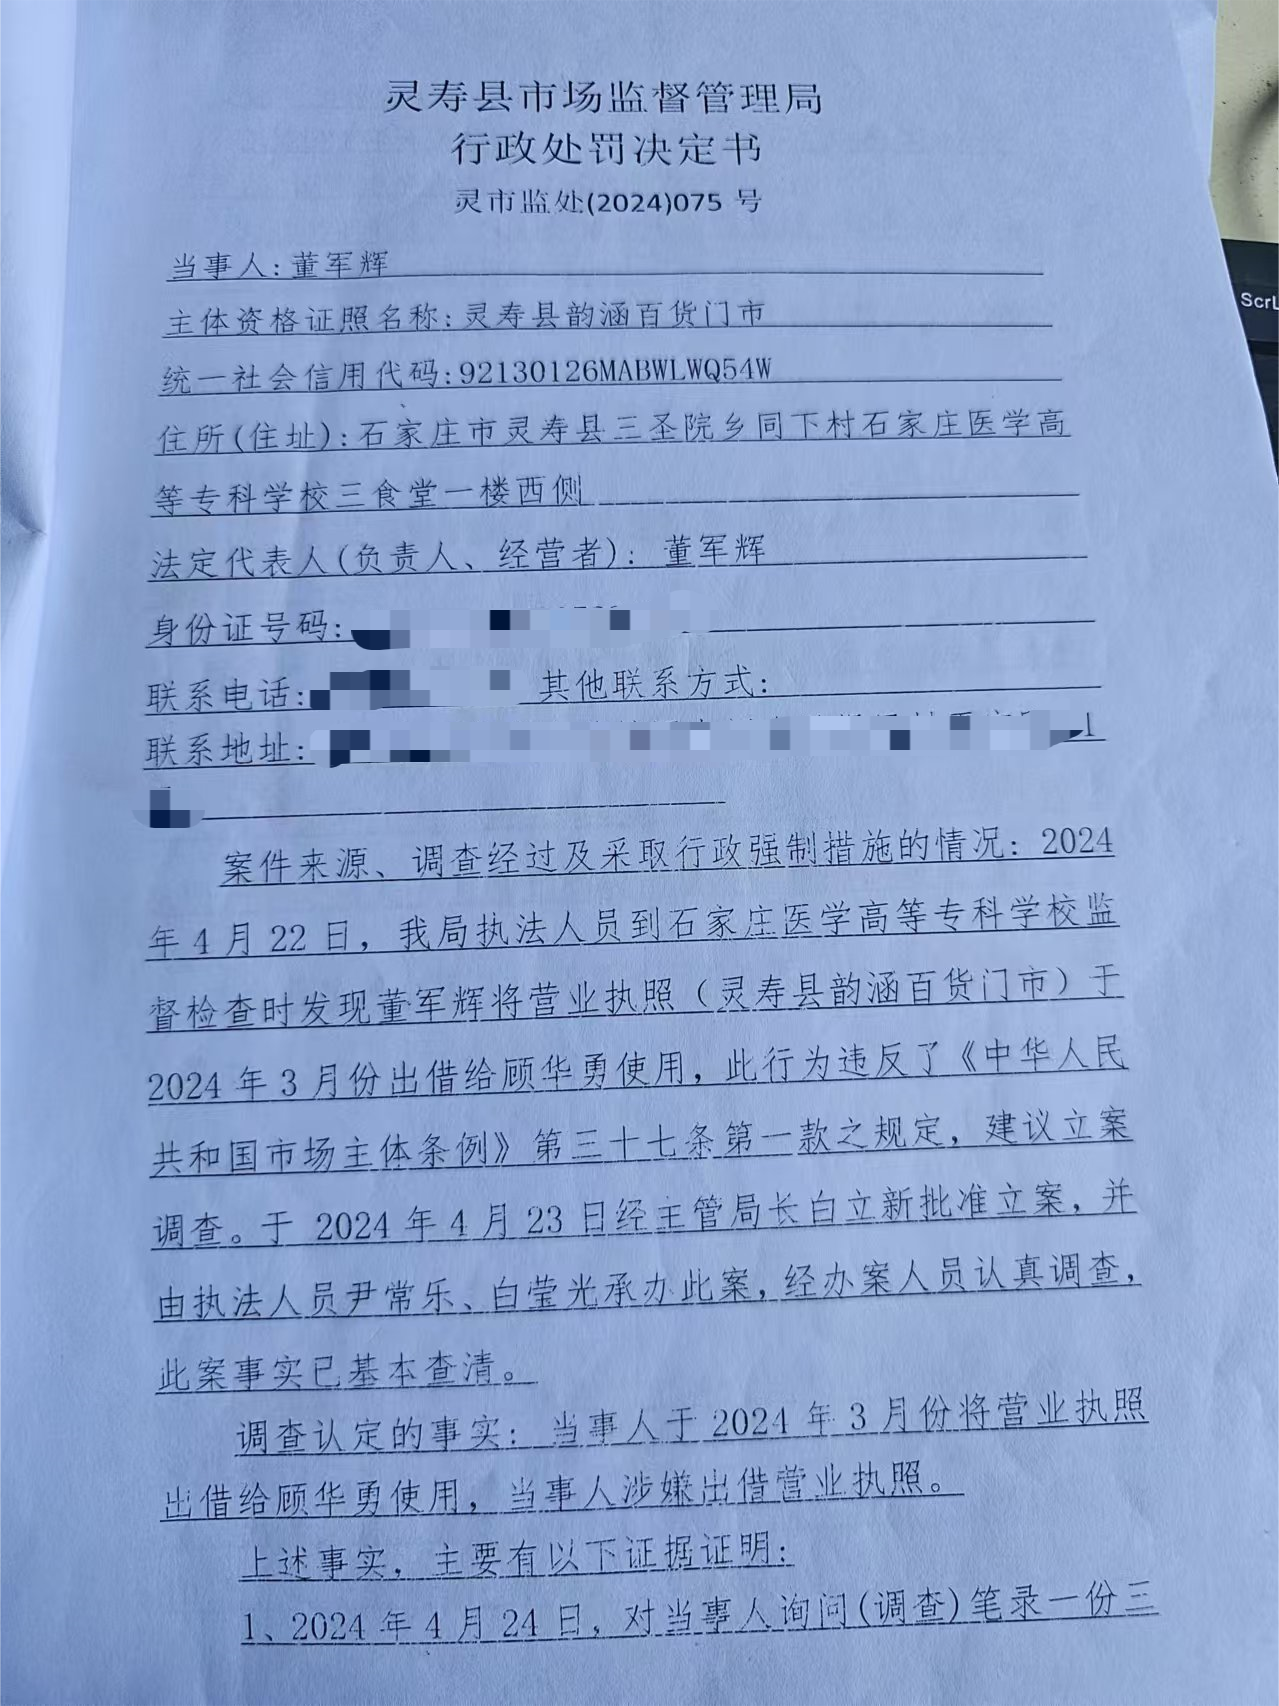 灵寿县市场监督管理局
行政处罚决定书
灵市监处(2024)075 号
当事人:董军辉
主体资格证照名称:灵寿县韵涵百货门市
统一社会信用代码:92130126MABWLWQ54W
住所(住址):石家庄市灵寿县三圣院乡同下村石家庄医学高
等专科学校三食堂一楼西侧
法定代表人(负责人、经营者): 董军辉
身份证号码:
联系电话: 其他联系方式:
联系地址:
案件来源、调查经过及采取行政强制措施的情况: 2024
年 4 月 22 日，我局执法人员到石家庄医学高等专科学校监
督检查时发现董军辉将营业执照（灵寿县韵涵百货门市）于
2024 年 3 月份出借给顾华勇使用，此行为违反了《中华人民
共和国市场主体条例》第三十七条第一款之规定，建议立案
调查。于 2024 年 4 月 23 日经主管局长白立新批准立案，并
由执法人员尹常乐、白莹光承办此案，经办案人员认真调查，
此案事实已基本查清。
调查认定的事实: 当事人于 2024 年 3 月份将营业执照
出借给顾华勇使用，当事人涉嫌出借营业执照。
上述事实，主要有以下证据证明:
1、2024 年 4 月 24 日，对当事人询问(调查)笔录一份三
ScrL